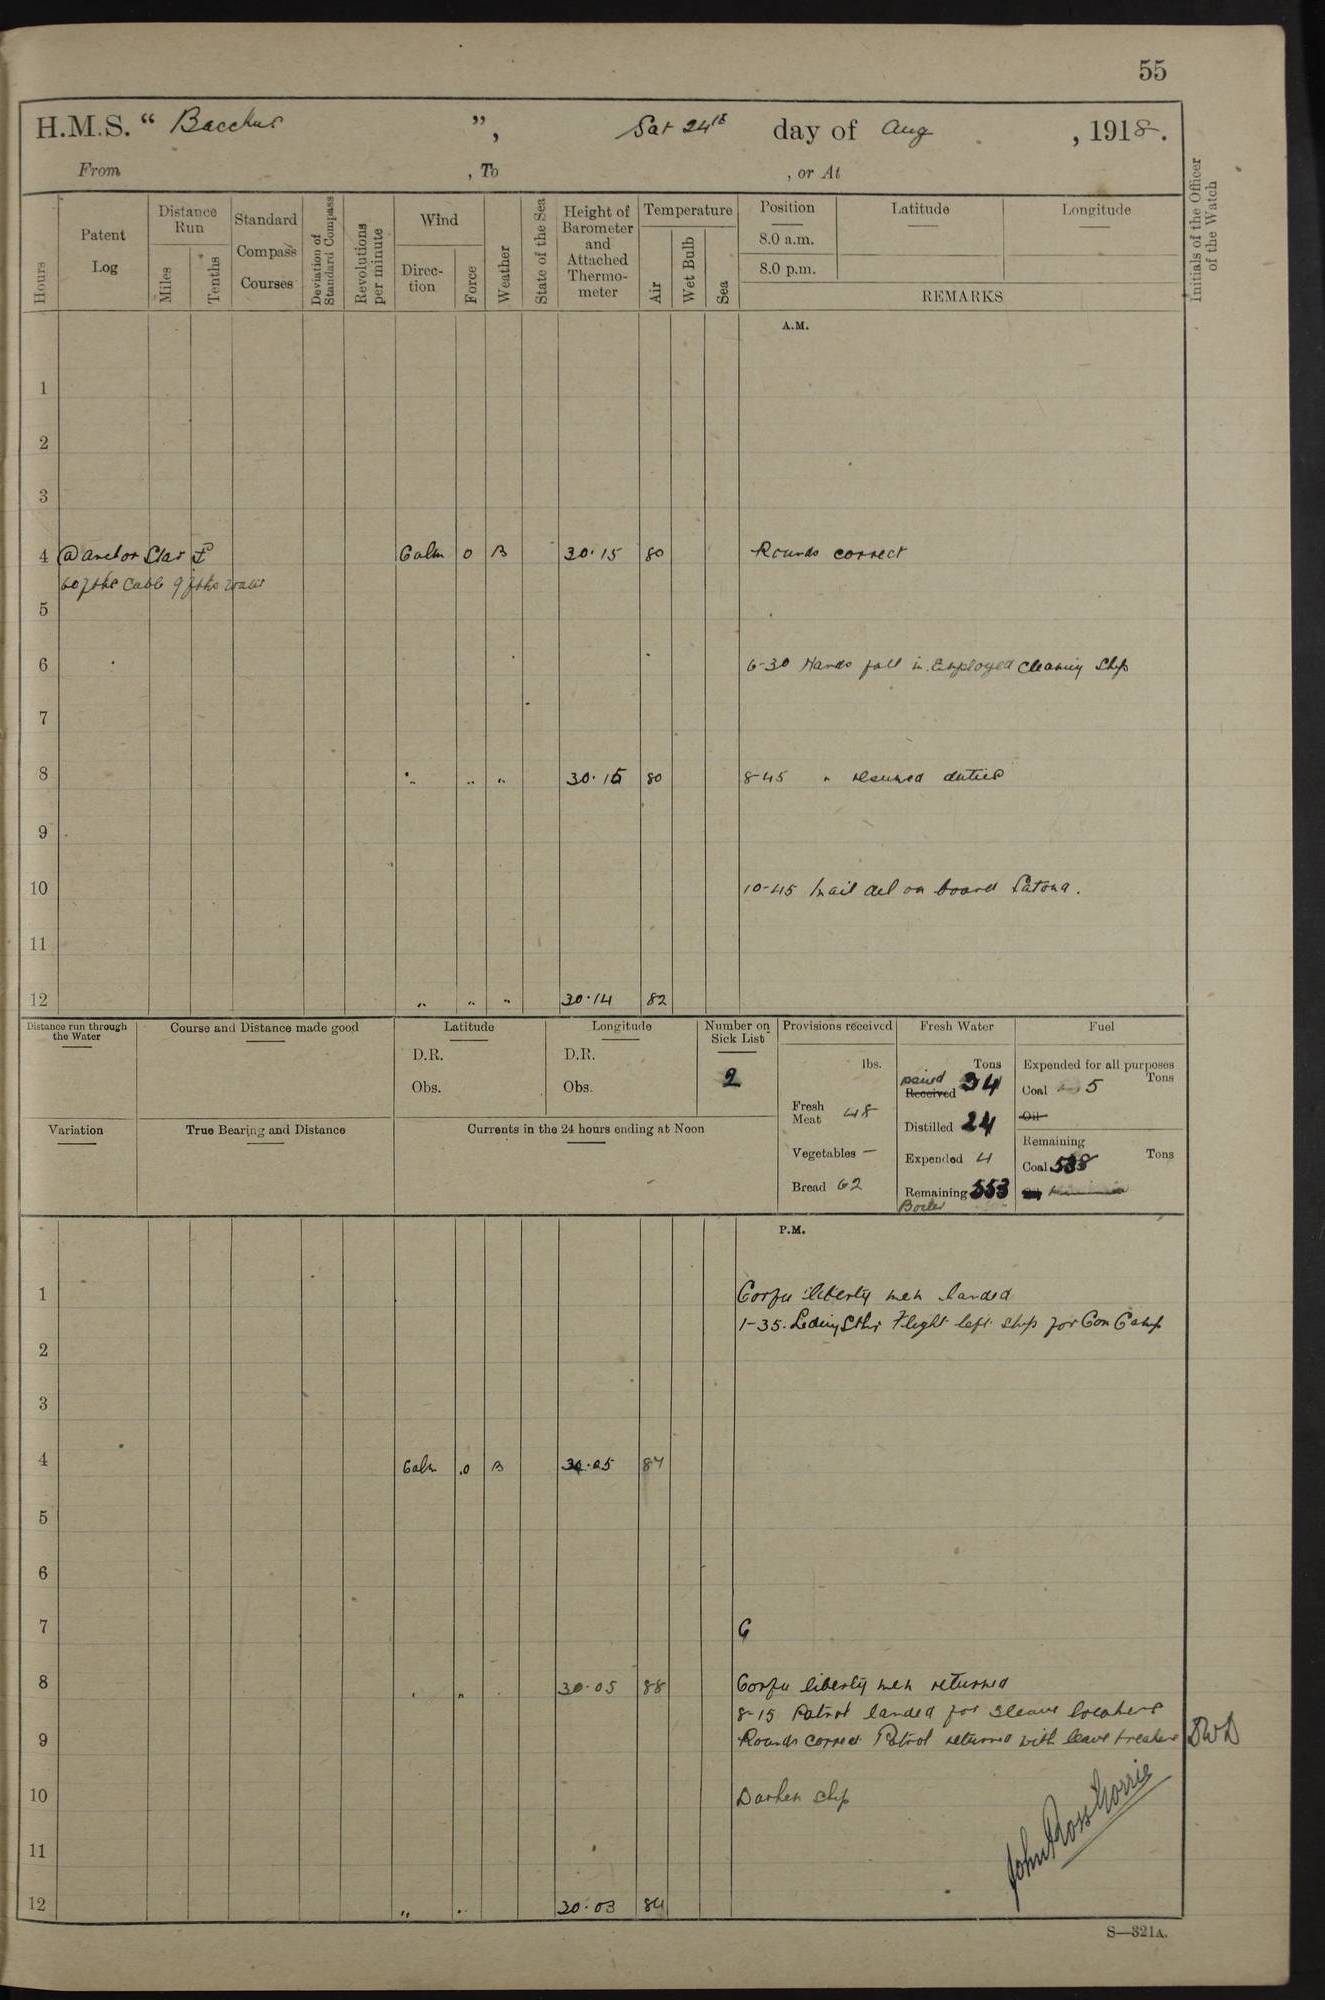 55
H.M.S. “ Bacchus ”, Sat 24th day of Aug , 1918.
From , To , or At
Hours
Patent Log
Distance Run
Miles
Tenths
Standard Compass Courses
Deviation of Standard Compass
Revolutions per minute
Wind
Direction
Force
Weather
State of the Sea
Height of Barometer and Attached Thermometer
Temperature
Air
Wet Bulb
Sea
Position
8.0 a.m.
8.0 p.m.
Latitude
Longitude
REMARKS
Initials of the Officer of the Watch
A.M.
1
2
3
4 @ anchor Calm 0 B 30.15 80 Rounds correct
5
6 6-30 Hands fall in. Employed Cleaning Ship
7
8 " " " 30.15 80 8-45 " resumed duties
9
10 10-45 Mail del on board Latona.
11
12 " " " 30.14 82
Distance run through the Water
Course and Distance made good
Latitude
D.R.
Obs.
Longitude
D.R.
Obs.
Number on Sick List
2
Provisions received
lbs.
Fresh Meat 48
Vegetables —
Bread 62
Fresh Water
Tons
Received 34
Distilled 24
Expended 4
Remaining 553
Boiler
Fuel
Expended for all purposes
Coal 5 Tons
Oil
Remaining
Coal 538 Tons
Variation
True Bearing and Distance
Currents in the 24 hours ending at Noon
P.M.
1 Corfu liberty men landed
1-35. Flight left ship for Con Camp
2
3
4 Calm 0 B 30.05 84
5
6
7 G
8 30.05 88 Corfu liberty men returned
8-15 Patrol landed for leave breakers
9 Rounds correct Patrol returned with leave breakers DWD
10 Darken ship
11
John Ross Gorrie
12 " " 30.03 84
S—321A.